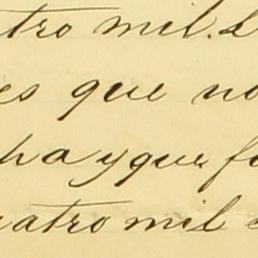 tro mil. L
es que no
hay que fu
uatro mil c